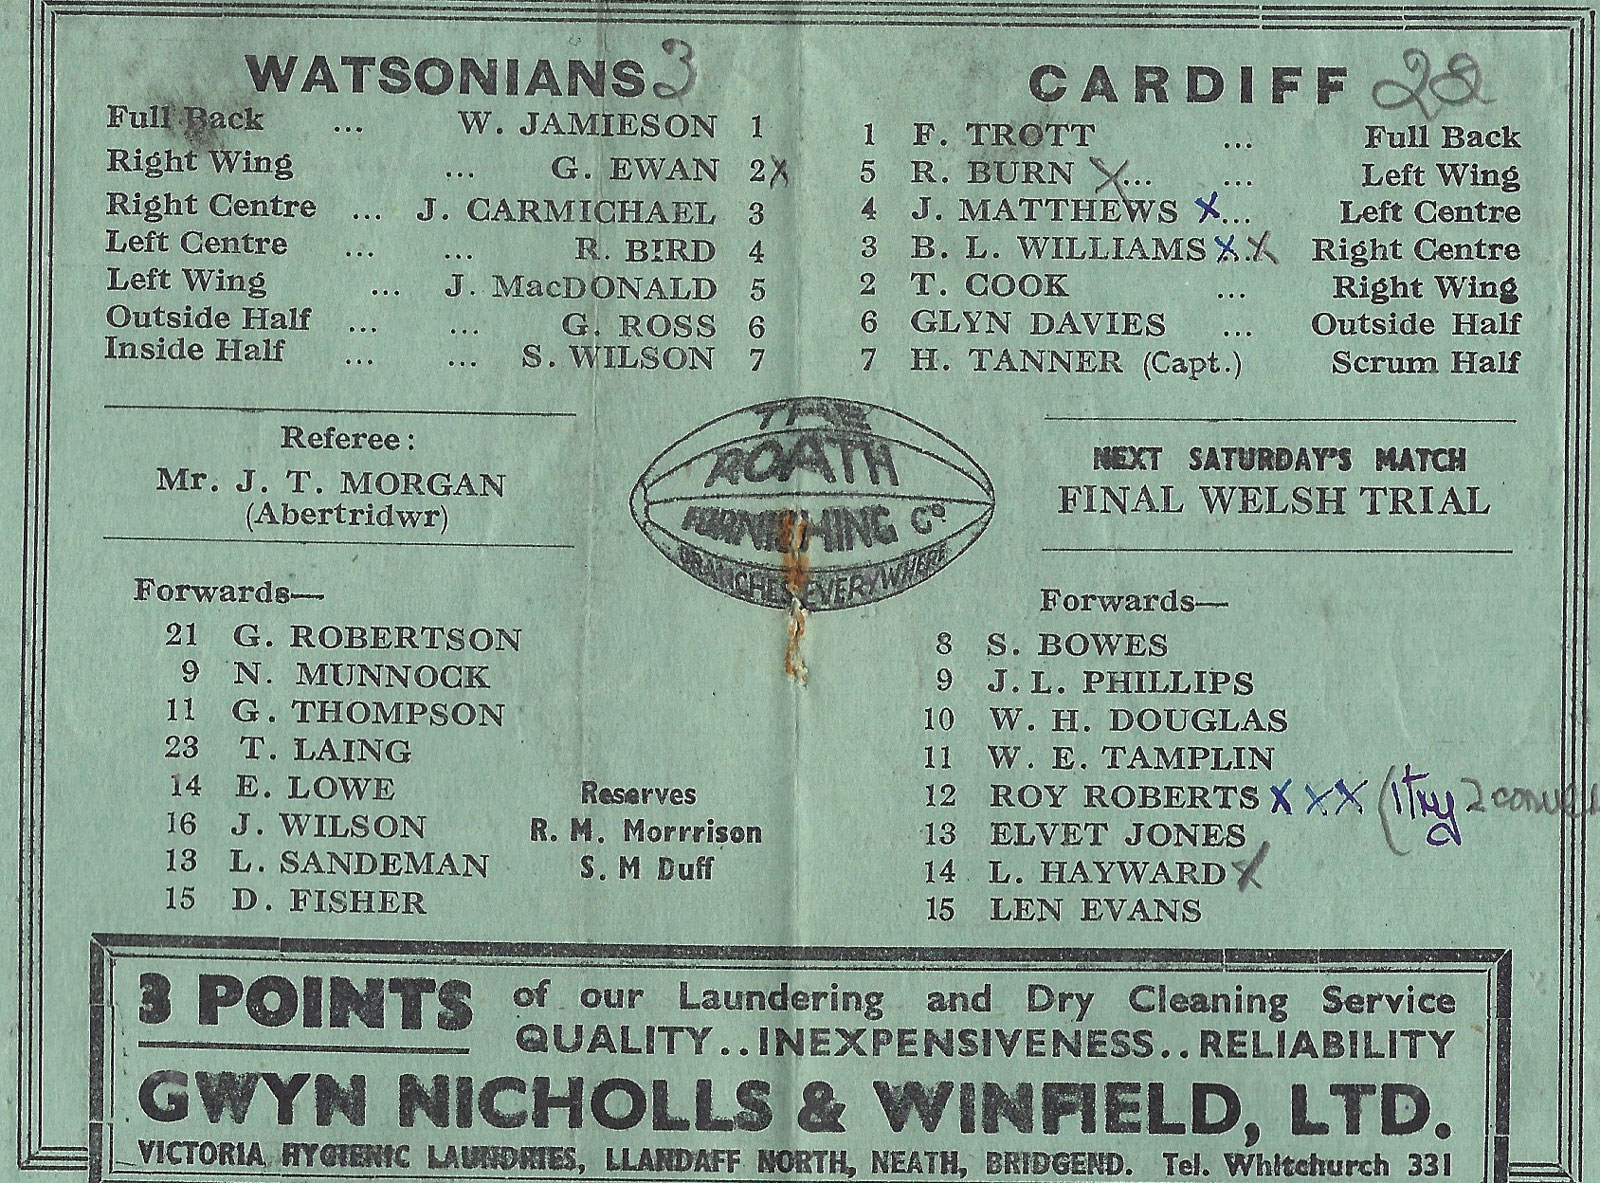 WATSONIANS 3
Full Back ... W. JAMIESON 1
Right Wing ... G. EWAN 2 X
Right Centre ... J. CARMICHAEL 3
Left Centre ... ... R. BIRD 4
Left Wing ... J. MacDONALD 5
Outside Half ... ... G. ROSS 6
Inside Half ... ... S. WILSON 7
Referee:
Mr. J. T. MORGAN
(Abertridwr)
Forwards—
21 G. ROBERTSON
9 N. MUNNOCK
11 G. THOMPSON
23 T. LAING
14 E. LOWE
16 J. WILSON
13 L. SANDEMAN
15 D. FISHER
Reserves
R. M. Morrrison
S. M Duff
THE
ROATH
FURNISHING Co.
BRANCHES EVERYWHERE
CARDIFF 28
1 F. TROTT ... Full Back
5 R. BURN X... ... Left Wing
4 J. MATTHEWS X... Left Centre
3 B. L. WILLIAMS X.X Right Centre
2 T. COOK ... Right Wing
6 GLYN DAVIES ... Outside Half
7 H. TANNER (Capt.) Scrum Half
NEXT SATURDAY'S MATCH
FINAL WELSH TRIAL
Forwards—
8 S. BOWES
9 J. L. PHILLIPS
10 W. H. DOUGLAS
11 W. E. TAMPLIN
12 ROY ROBERTS X X X (1 try 2 conver
13 ELVET JONES
14 L. HAYWARD X
15 LEN EVANS
3 POINTS of our Laundering and Dry Cleaning Service
QUALITY..INEXPENSIVENESS..RELIABILITY
GWYN NICHOLLS & WINFIELD, LTD.
VICTORIA HYGIENIC LAUNDRIES, LLANDAFF NORTH, NEATH, BRIDGEND. Tel. Whitchurch 331